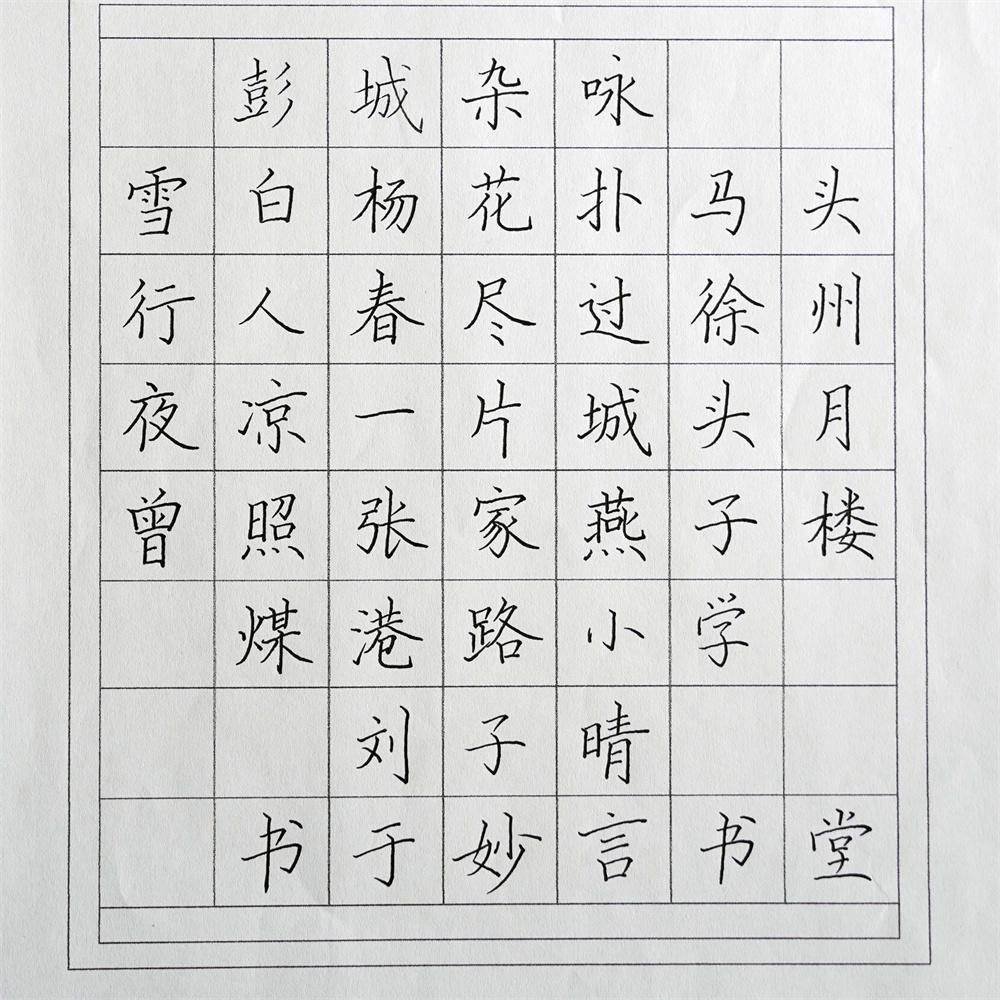 彭城杂咏
雪白杨花扑马头
行人春尽过徐州
夜凉一片城头月
曾照张家燕子楼
煤港路小学
刘子晴
书于妙言书堂